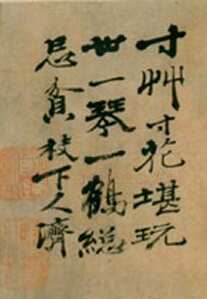 寸艸寸花堪玩
世一琴一鶴總
忘貧 枝下人濟